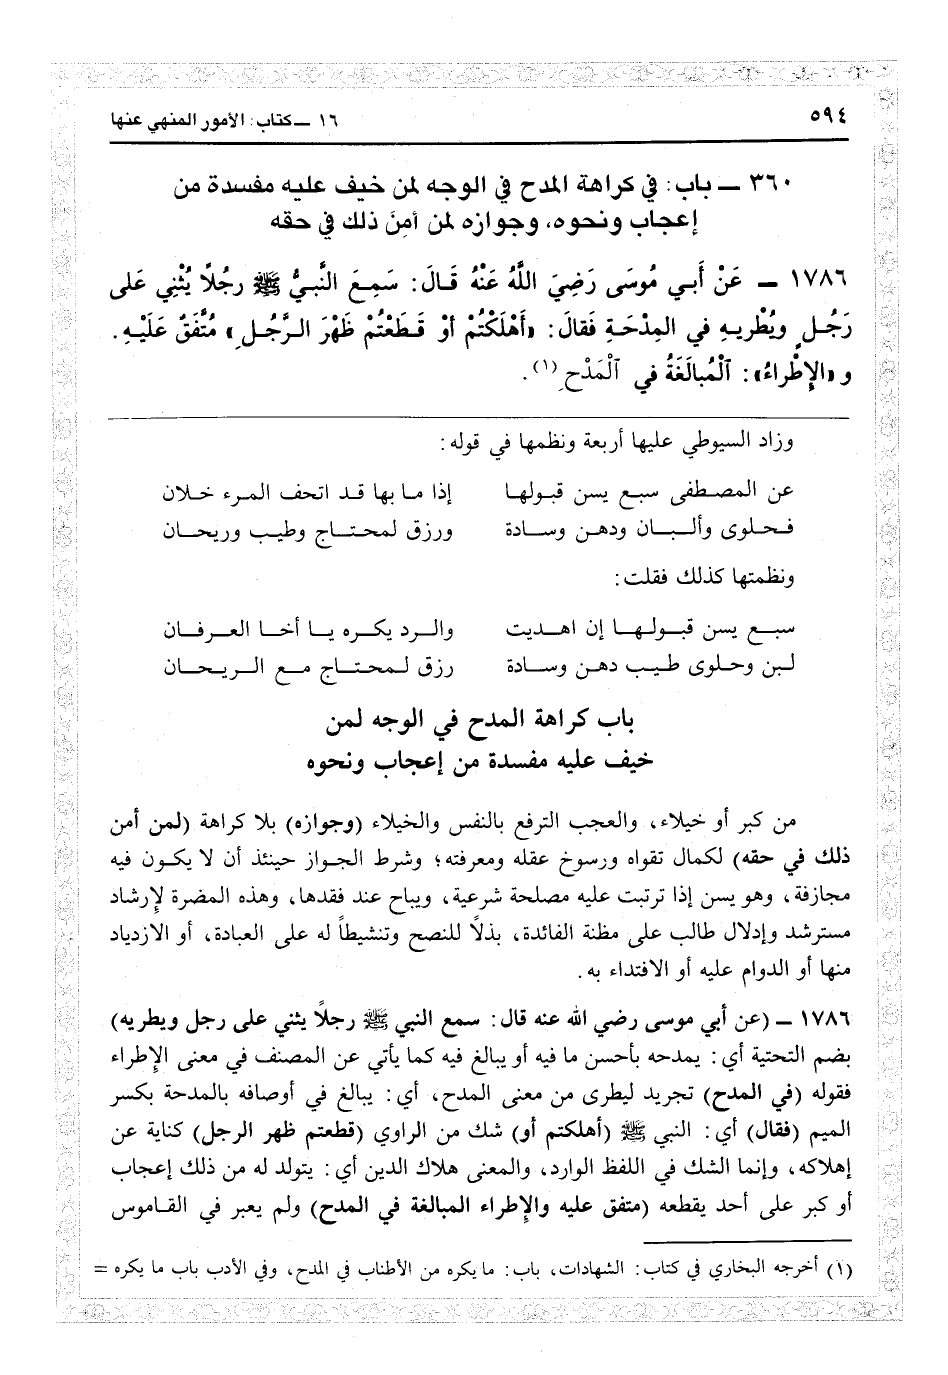 ٥٩٤
١٦ ــ كتاب: الأمور المنهي عنها
٣٦٠ ــ باب: في كراهة المدح في الوجه لمن خيف عليه مفسدة من
إعجاب ونحوه، وجوازه لمن أمِنَ ذلك في حقه
١٧٨٦ ــ عَنْ أَبي مُوسَى رَضِيَ اللَّهُ عَنْهُ قَالَ: سَمِعَ النَّبيُّ ﷺ رجُلاً يُثْنِي عَلى
رَجُلٍ ويُطْريهِ في المِدْحَةِ فَقالَ: «أَهْلَكْتُمْ أوْ قَطَعْتُمْ ظَهْرَ الرَّجُلِ» مُتَّفَقٌ عَلَيْهِ.
و «الإِطْراءُ»: ٱلْمُبالَغَةُ في ٱلْمَدْحِ(١).
وزاد السيوطي عليها أربعة ونظمها في قوله:
عن المصطفى سبع يسن قبولها إذا ما بها قد اتحف المرء خلان
فحلوى وألبان ودهن وسادة ورزق لمحتاج وطيب وريحان
ونظمتها كذلك فقلت:
سبع يسن قبولها إن اهديت والرد يكره يا أخا العرفان
لبن وحلوى طيب دهن وسادة رزق لمحتاج مع الريحان
باب كراهة المدح في الوجه لمن
خيف عليه مفسدة من إعجاب ونحوه
من كبر أو خيلاء، والعجب الترفع بالنفس والخيلاء (وجوازه) بلا كراهة (لمن أمن
ذلك في حقه) لكمال تقواه ورسوخ عقله ومعرفته؛ وشرط الجواز حينئذ أن لا يكون فيه
مجازفة، وهو يسن إذا ترتبت عليه مصلحة شرعية، ويباح عند فقدها، وهذه المضرة لإِرشاد
مسترشد وإدلال طالب على مظنة الفائدة، بذلاً للنصح وتنشيطاً له على العبادة، أو الازدياد
منها أو الدوام عليه أو الاقتداء به.
١٧٨٦ ــ (عن أبي موسى رضي الله عنه قال: سمع النبي ﷺ رجلاً يثني على رجل ويطريه)
بضم التحتية أي: يمدحه بأحسن ما فيه أو يبالغ فيه كما يأتي عن المصنف في معنى الإِطراء
فقوله (في المدح) تجريد ليطرى من معنى المدح، أي: يبالغ في أوصافه بالمدحة بكسر
الميم (فقال) أي: النبي ﷺ (أهلكتم أو) شك من الراوي (قطعتم ظهر الرجل) كناية عن
إهلاكه، وإنما الشك في اللفظ الوارد، والمعنى هلاك الدين أي: يتولد له من ذلك إعجاب
أو كبر على أحد يقطعه (متفق عليه والإِطراء المبالغة في المدح) ولم يعبر في القاموس
(١) أخرجه البخاري في كتاب: الشهادات، باب: ما يكره من الأطناب في المدح، وفي الأدب باب ما يكره =